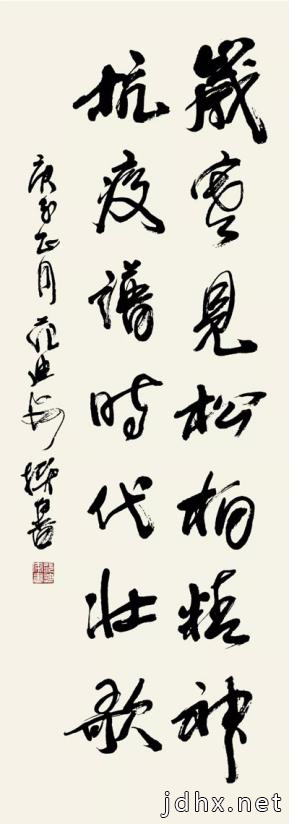 歲寒見松柏精神
抗疫譜時代壯歌
庚子正月 范迪安 撰書
jdhx.net